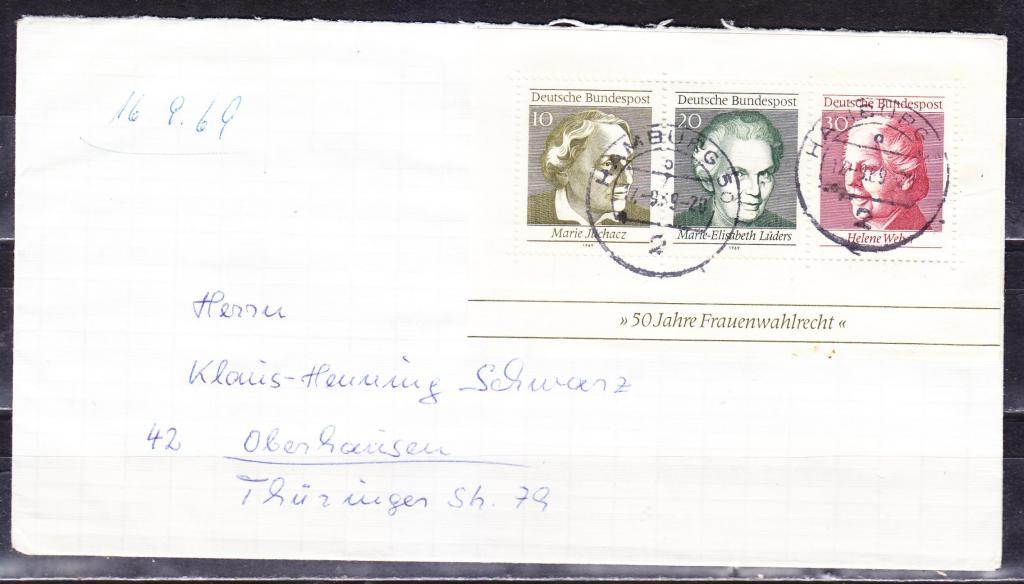 16.9.69
Deutsche Bundespost
10
Marie Juchacz
1969
Deutsche Bundespost
20
Marie-Elisabeth Lüders
1969
Deutsche Bundespost
30
Helene Weber
HAMBURG 50
2
HAMBURG
2
» 50 Jahre Frauenwahlrecht «
Herrn
Klaus-Henning Schwarz
42 Oberhausen
Thüringer Str. 79